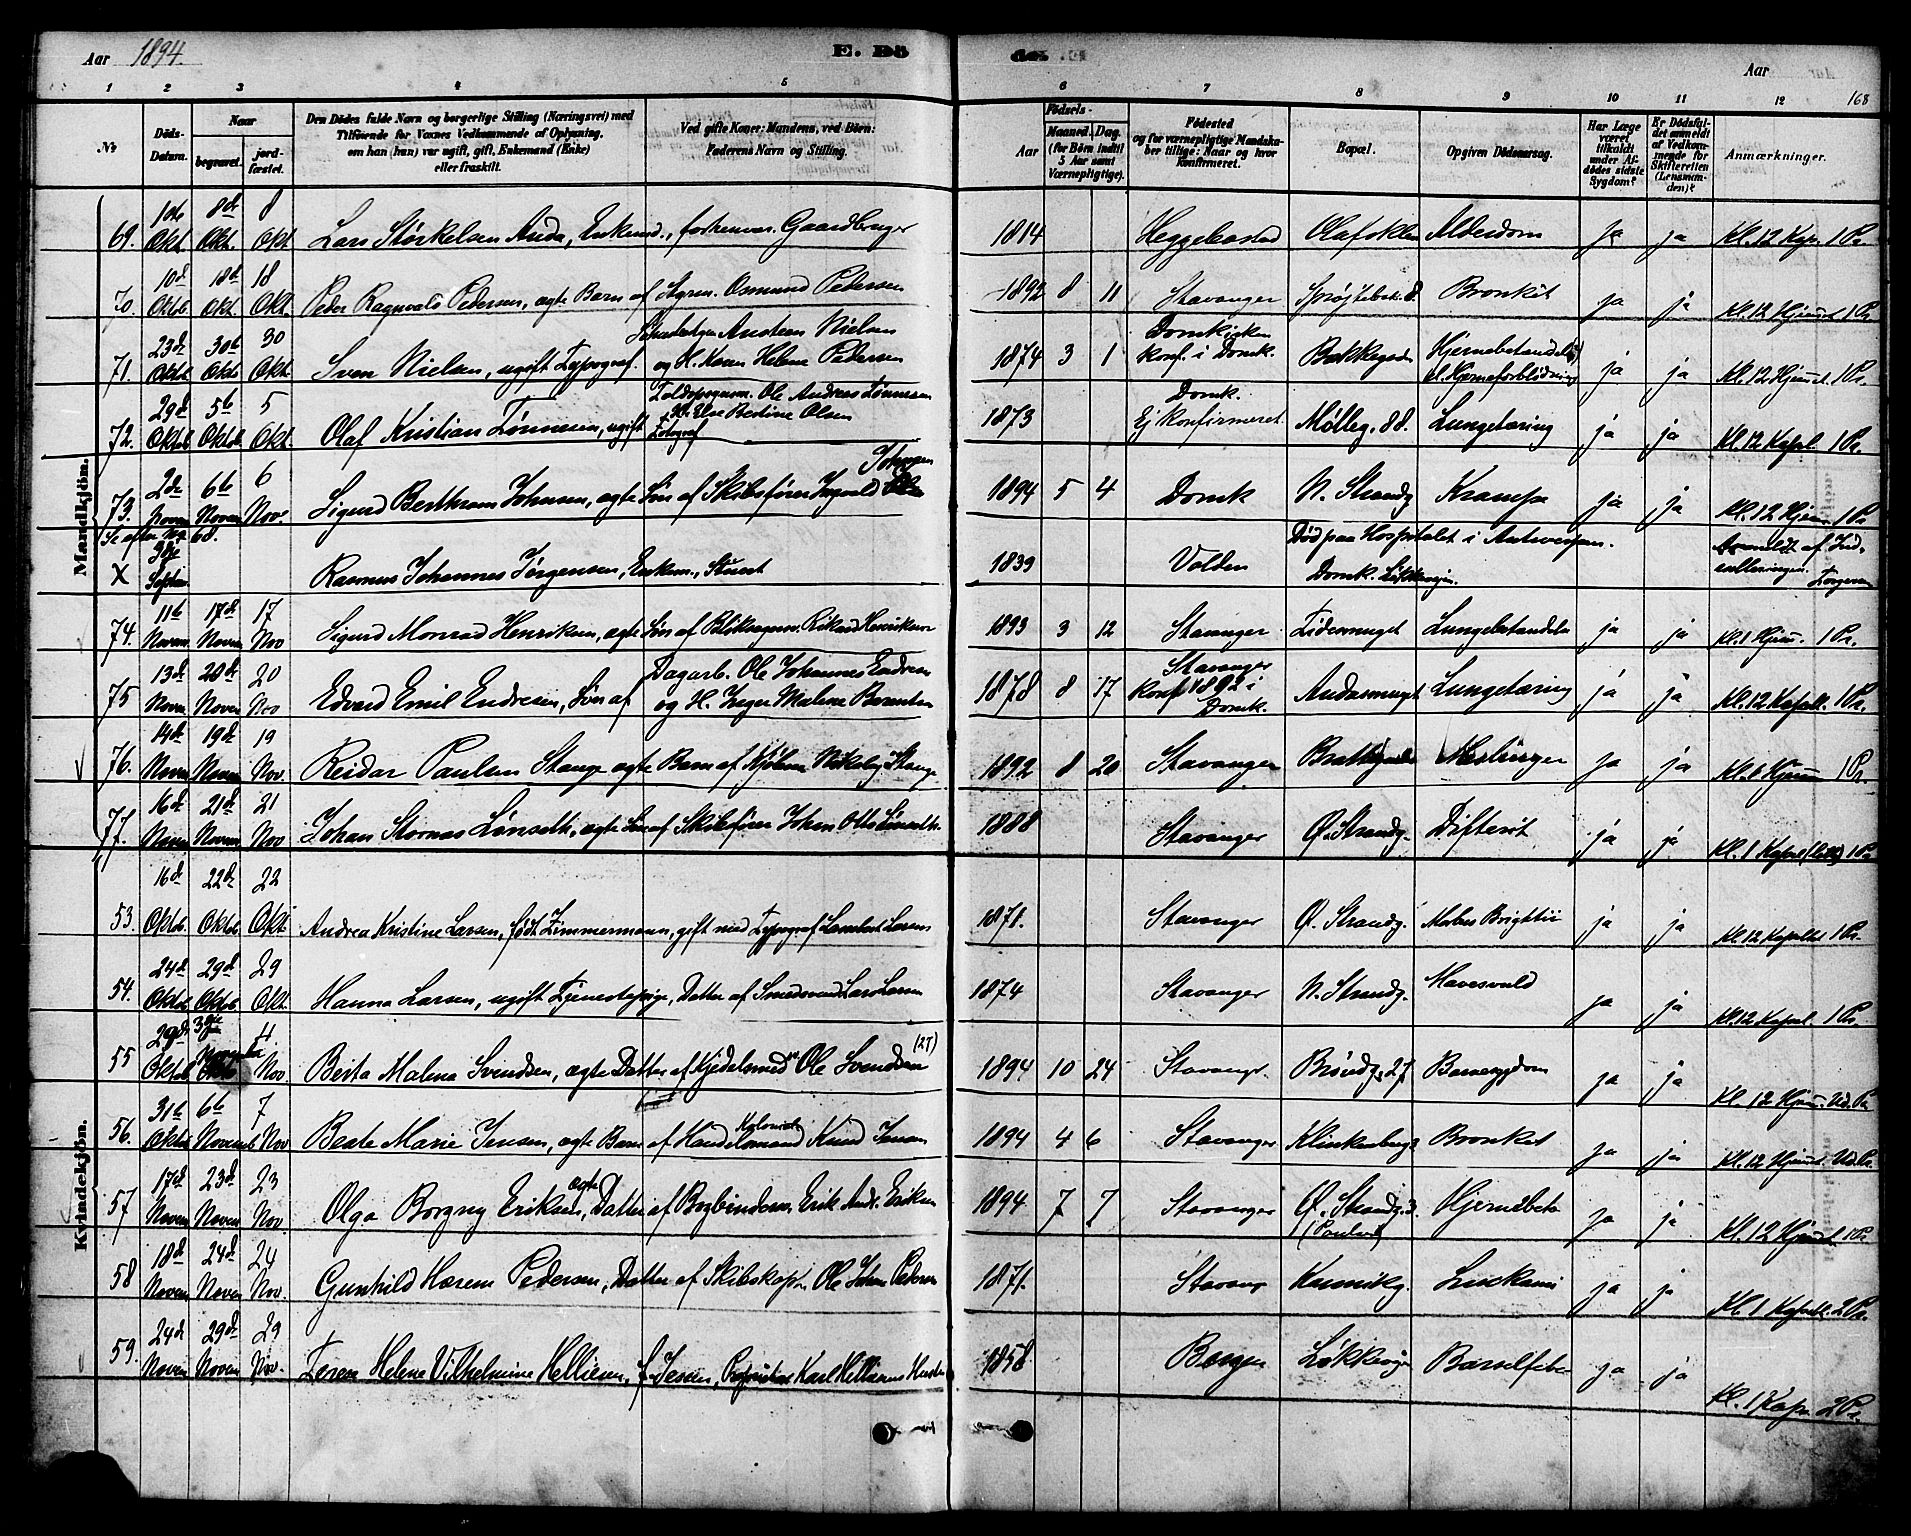 Aar 1894.
E. Dö
de.
Aar
168
1 2 3 4 5 6 7 8 9 10 11 12
No
Döds-Datum.
Naar
begravet.
jord-fæstet.
Den Dödes fulde Navn og borgerlige Stilling (Næringsvei) med
Tilföiende for Voxnes Vedkommende af Oplysning,
om han (hun) var ugift, gift, Enkemand (Enke)
eller fraskilt.
Ved gifte Koner: Mandens, ved Börn:
Faderens Navn og Stilling.
Födsels-
Aar
Maaned. Dag.
(for Börn indtil
5 Aar samt
Værnepligtige).
Födested
og for værnepligtige Mandska-
ber tillige: Naar og hvor
konfirmeret.
Bopæl.
Opgiven Dödsaarsag.
Har Læge
været
tilkaldt
under Af-
dødes sidste
Sygdom?
Er Dödsfal-
det anmeldt
af Vedkom-
mende for
Skifteretten
(Lensman-
den)?
Anmærkninger.
Mandkjön.
69. 1ste Okt. 8de Okt. 8 Okt. Lars Störkelsen Anda, Enkemd., forhenvær. Gaardbruger 1814 Heggebostad Olafsklev Alderdom ja ja Kl. 12 Kap. 1 Pr.
70. 10d Oktob. 18d Okt. 18 Okt. Peder Ragnvald Pedersen, ægte Barn af Styrm. Osmund Pedersen 1892 8 11 Stavanger Sprøjtebak. 8. Bronkit ja ja Kl. 12 Hjemmet 1 Pr
71. 23d Oktob. 30te Oktob. 30 Okt. Sven Nielsen, ugift Typograf. Austeen Nielsen og H. Koen Helene Pedersen 1874 3 1 Domkirken konf. i Domk. Bakkegaden Hjernebetændelse el. Hjerneforblødning ja ja Kl. 12 Hjemmet. 1 Pr.
72. 29d Oktob. 5te Oktob. 5 Okt. Olaf Kristian Tönnesen, ugift Fotograf Ole Andreas Tönnesen Else Bertine Olsen 1873 Domk. Ej Konfirmeret Mølleg. 88. Lungetæring ja ja Kl. 12 Kapel. 1 Pr.
73. 2de Noven 6te Noven 6 Nov. Sigurd Berthram Johnsen, ægte Søn af Skibsfører Ingvald Johnsen 1894 5 4 Domk N. Strandg Krampe ja ja Kl. 12 Hjem. 1 Pr
Se efter No 68.
X Septbr. Rasmus Johannes Jørgensen, Enkem., Stuert 1839 Volden Død paa Hospitalet i Antwerpen. Domk. Løkkevejen. Anmeldt af Ind-
74. 11te Noven 17de Noven 17 Nov Sigurd Monrad Henriksen, ægte Søn af Bliksagerm. Rikard Henriksen 1893 3 12 Stavanger Tidemsmuget Lungebetændelse ja ja Kl. 1 Hjem. 1 Pr.
75 13d Noven 20de Noven 20 Nov Edvard Emil Endresen, Søn af Dagarb. Ole Johannes Endresen og H. Inger Malene Berentsen 1878 8 17 Stavanger konf. 1892 i Domk. Andasmuget Lungetæring ja ja Kl. 12 Kapell. 1 Pr.
76. 14de Noven 19de Noven 19 Nov. Reidar Paulsen Stange ægte Barn af Kjøbm. Nikolay Stange 1892 8 20 Stavanger Meslinger ja ja Kl. 1 Hjem 1 Pr.
77. 16d Noven 21de Noven 21 Nov Johan Lønseth, ægte Søn af Skibsfører Johan Otto Lønseth 1888 Stavanger Ø. Strandg. Difterit ja ja Kl. 1 Kapel 1 Pr
Kvindekjön.
53. 16d Oktob. 22de Oktob. 22 Okt. Andrea Kristine Larsen, født Zimmermann, gift med Typograf Lambert Larsen 1871. Stavanger Ø. Strandg. Morbus Brightii ja ja Kl. 12 Kapellet 1 Pr.
54. 24d Oktob. 29d Oktob. 29 Okt. Hanna Larsen, ugift Tjenestepige, Datter af Smedsvend Lars Larsen 1874 Stavanger N. Strandg. Mavesvuld ja ja Kl. 12 Kapel. 1 Pr.
55 29de Oktob. November 4 Nov Berta Malena Svendsen, ægte Datter af Kjedelsmed Ole Svendsen (27) 1894 10 24 Stavanger. Brøndg. 27 Barnesygdom ja ja Kl. 12 Hjem. Vid. Pr
56. 31te Oktob. 6te Novemb 7 Nov Beate Marie Jensen, ægte Barn af Kolonial Handelsmand Knud Jensen 1894 4 6 Stavanger Klinkenberg Bronkit ja ja Kl. 12 Hjemmet. Vid. Pr.
57 17de Noven 23de Noven 23 Nov. Olga Borgny Eriksen, ægte Datter af Bogbinderm. Erik Andr. Eriksen 1894 7 7 Stavanger Ø. Strandg. 3. Hjernebet. ja ja Kl. 12 Hjemmet 1 Pr
58 18de Noven 24de Noven 24 Nov. Gunhild Harem Pedersen, Datter af Skibskapt. Ole Johan Pedersen 1871. Stavang Kannikg. Leuckæmi ja ja Kl. 1 Kapell. 2 Pr.
59. 24de Noven 29de Noven 29 Nov. Helene Vilhelmine Helliesen, f. Jesen, Karl Helliesens Hustru 1858 Bergen Løkkevejen Barselfeber ja ja Kl. 1 Kapn. 2 Pr.